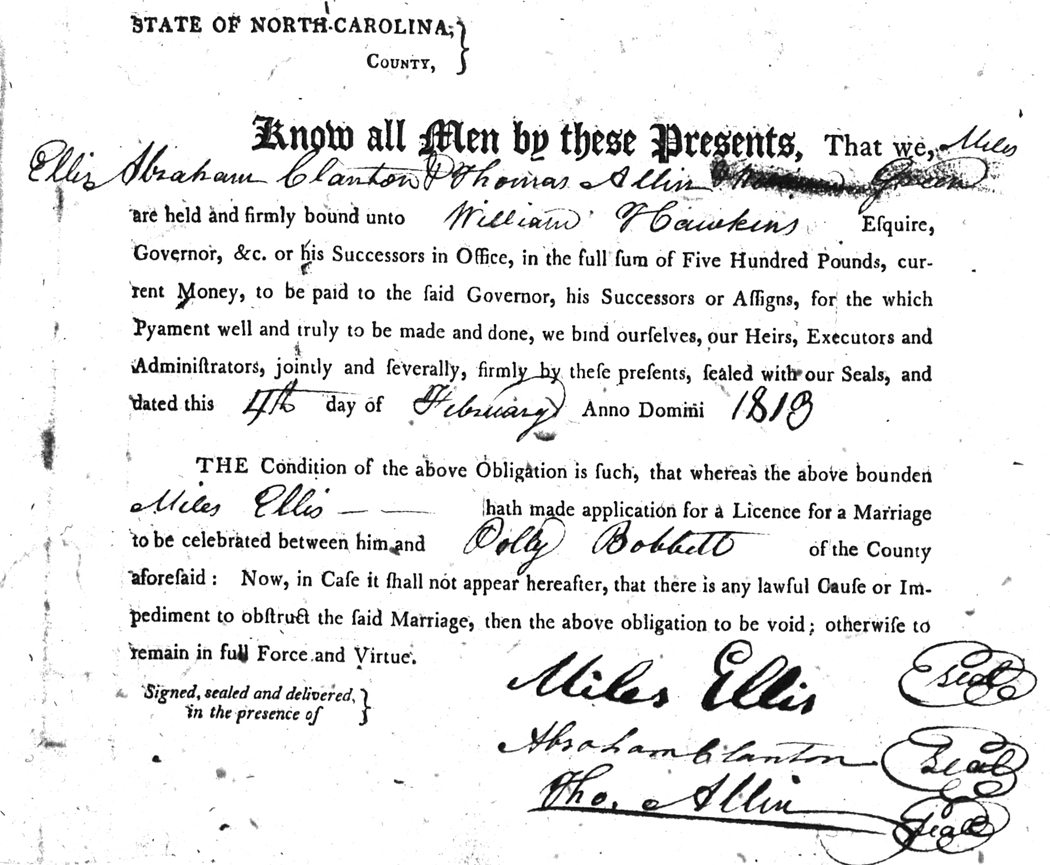 STATE OF NORTH-CAROLINA,
COUNTY,
Know all Men by these Presents, That we, Miles
Ellis Abraham Clanton & Thomas Allin Green
are held and firmly bound unto William Hawkins Eſquire,
Governor, &c. or his Successors in Office, in the full ſum of Five Hundred Pounds, cur-
rent Money, to be paid to the ſaid Governor, his Successors or Aſſigns, for the which
Pyament well and truly to be made and done, we bind ourſelves, our Heirs, Executors and
Adminiſtrators, jointly and ſeverally, firmly by theſe preſents, ſealed with our Seals, and
dated this 4th day of February Anno Domini 1813
THE Condition of the above Obligation is ſuch, that whereas the above bounden
Miles Ellis — — hath made application for a Licence for a Marriage
to be celebrated between him and Polly Bobbett of the County
aforeſaid : Now, in Caſe it ſhall not appear hereafter, that there is any lawful Cauſe or Im-
pediment to obſtruct the ſaid Marriage, then the above obligation to be void; otherwiſe to
remain in full Force and Virtue.
Signed, sealed and delivered,
in the presence of
Miles Ellis Seal
Abraham Clanton Seal
Tho. Allin Seal